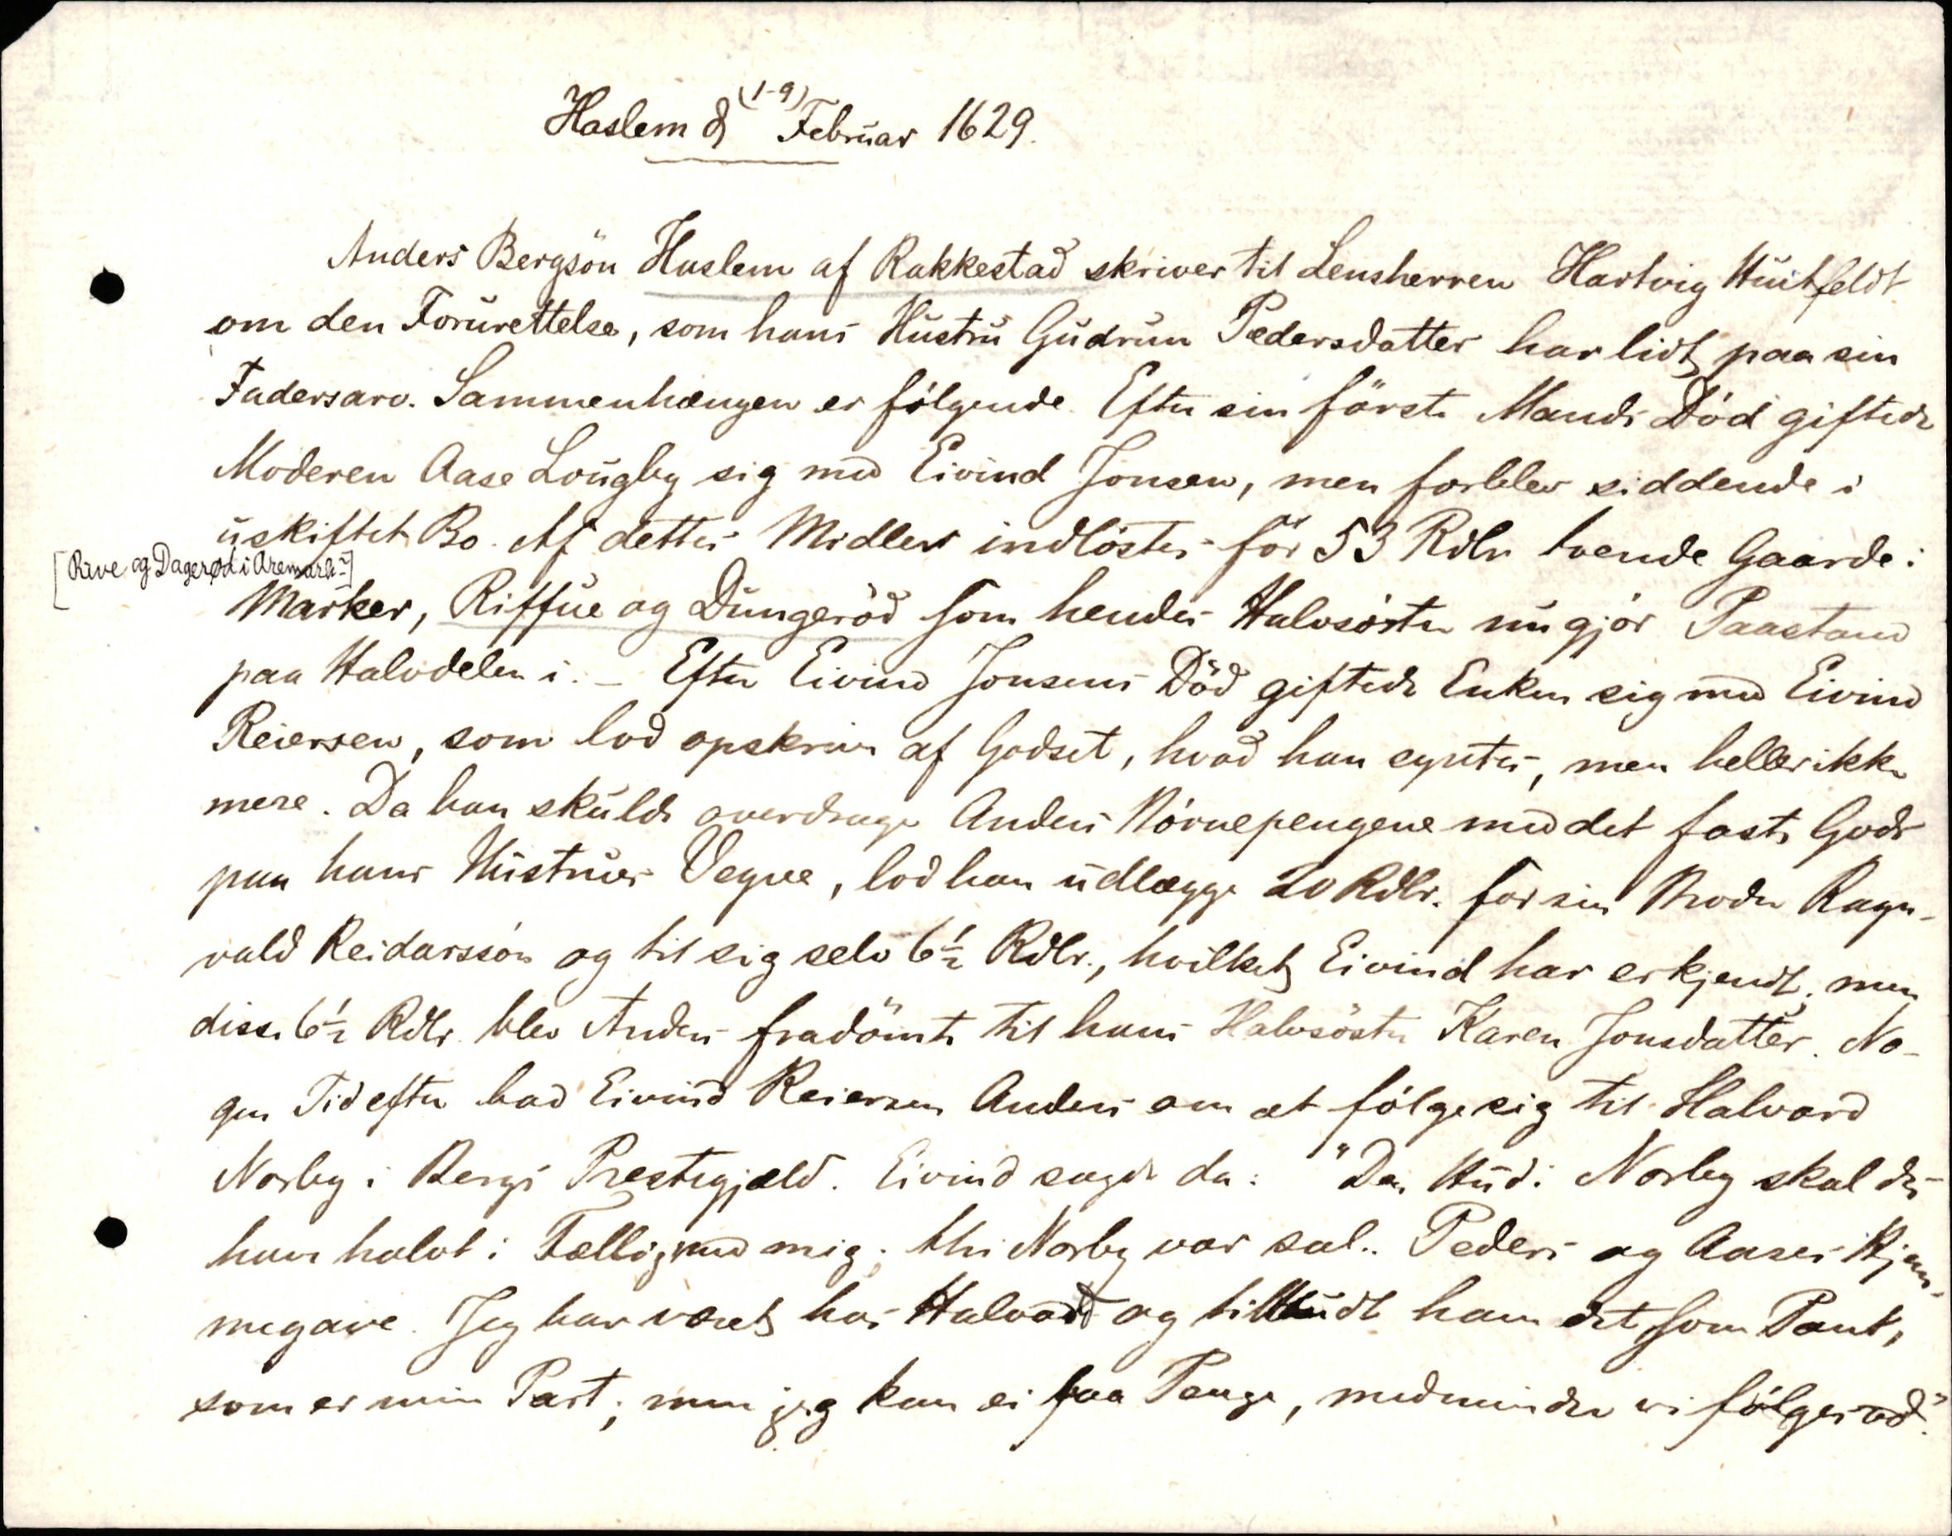 Haslem d (1-9) Februar 1629.
Anders Bergsön Haslem af Rakkestad skriver til Lensherren Hartvig Huitfeldt
om den Forurettelse, som hans Hustru Gudrun Pedersdatter har lidt paa sin
Fadersarv. Sammenhængen er følgende. Efter sin förste Mands Död giftede
Moderen Aase Lougby sig med Eivind Jonsen, men forblev siddende i
uskiftet Bo. Af dettes Midler indlöstes for 53 Rdlr tvende Gaarde i
[Rive og Dagerød i Aremark]
Marker, Riffue og Dungeröd som hendes Halvsöster nu gjör Paastand
paa Halvdelen i. – Efter Eivind Jonsens Död giftede Enken sig med Eivind
Reiersen, som lod opskrive af Godset, hvad han syntes, men heller ikke
mere. Da han skulde overdrage Anders Börnepengene med det faste Gods
paa hans Hustrues Vegne, lod han udlægge 20 Rdlr. for sin Broder Ragn-
vald Reidarssön og til sig selv 6½ Rdlr., hvilket Eivind har erkjendt; men
disse 6½ Rdlr. blev Anders fradömte til hans Halvsöster Karen Jonsdatter. No-
gen Tid efter bad Eivind Reiersen Anders om at fölge sig til Halvard
Norby i Bergs Prestegjæld. Eivind sagde da: "Den Hud i Norby skal du
have halvt i Fællig med mig; thi Norby var sal. Peders og Aases Hjem-
megave. Jeg har været hos Halvard og tilbudt ham det som Pant,
som er min Part; men jeg kan ei faa Penge, medminder vi fölges ad."